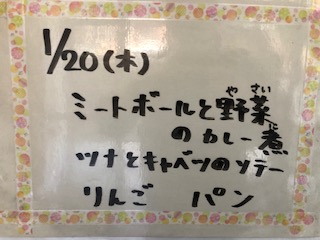 1/20(木)
ミートボールと野菜
やさい
のカレー煮
に
ツナとキャベツのソテー
りんご パン